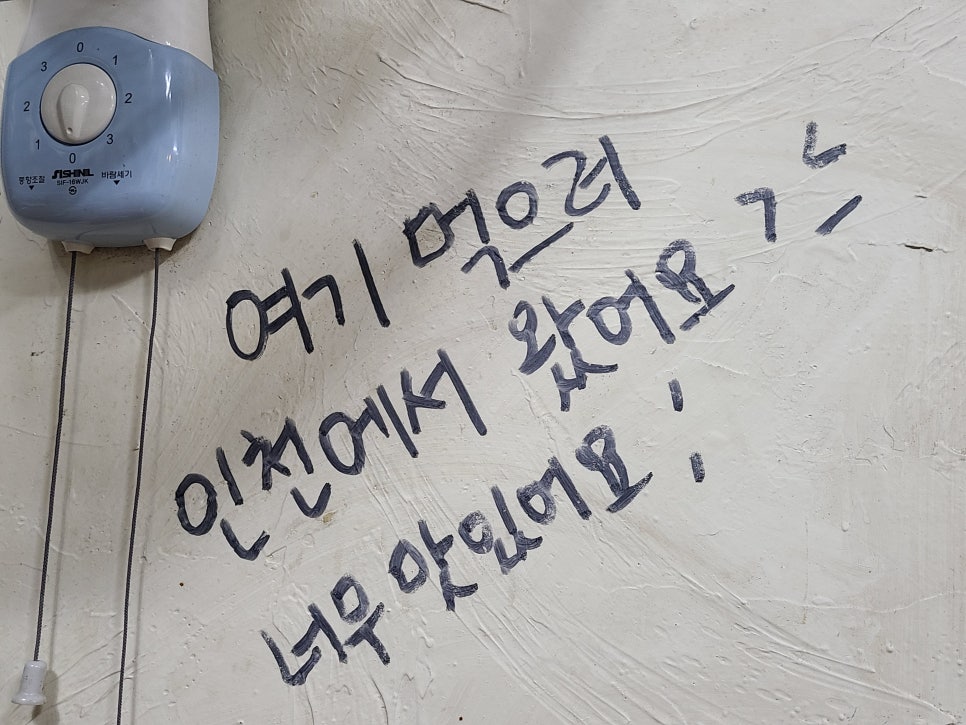 0
3 1
2 2
1 3
0
풍향조절 SHINIL 바람세기
SIF-16WJK
여기 먹으러
인천에서 왔어요
너무 맛있어요!